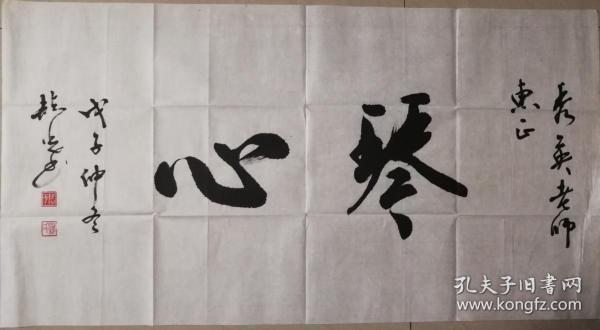 秀英老师
惠正
琴心
戊子仲冬
孔夫子旧书网
www.kongfz.com